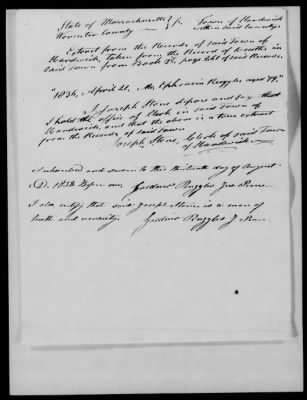 State of Massachusetts } ss. Town of Hardwick
Worcester County } within said County
Extract from the Records of said Town of
Hardwick, taken from the Record of Deaths in
said Town from Book page 261 of said Records.
"1836, April 21, Mr Ephraim Ruggles aged 79."
I, Joseph Stone depose and say that
I hold the office of Clerk in said Town of
Hardwick, and that the above is a true extract
from the Records of said Town
Joseph Stone, Clerk of said Town
of Hardwick
Subscribed and sworn to this thirteenth day of August
A.D. 1838 Before me, Gardner Ruggles Jus. Peace
I also certify that said Joseph Stone is a man of
truth and veracity. Gardner Ruggles J. Peace.